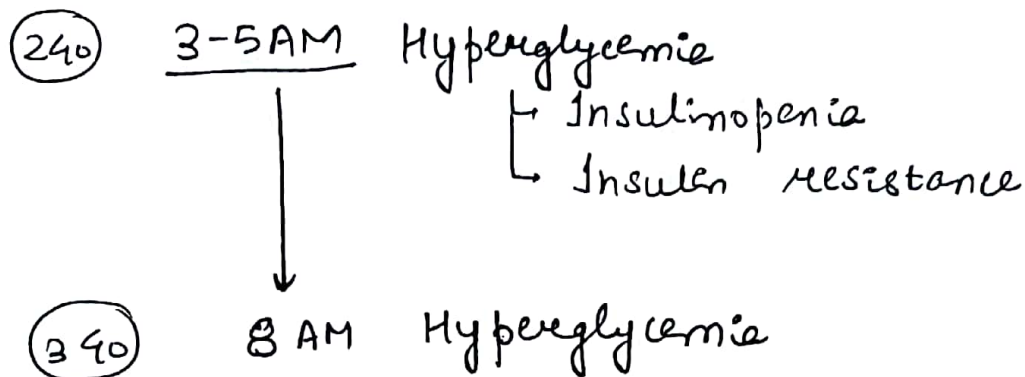 240 3-5AM Hyperglycemia
Insulinopenia
Insulin resistance
340 8 AM Hyperglycemia